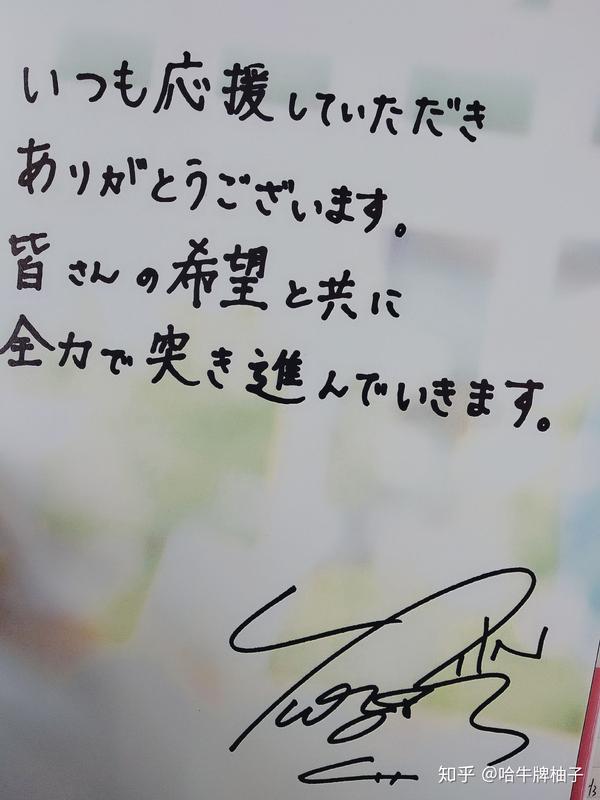 いつも応援していただき
ありがとうございます。
皆さんの希望と共に
全力で突き進んでいきます。
知乎 @哈牛牌柚子